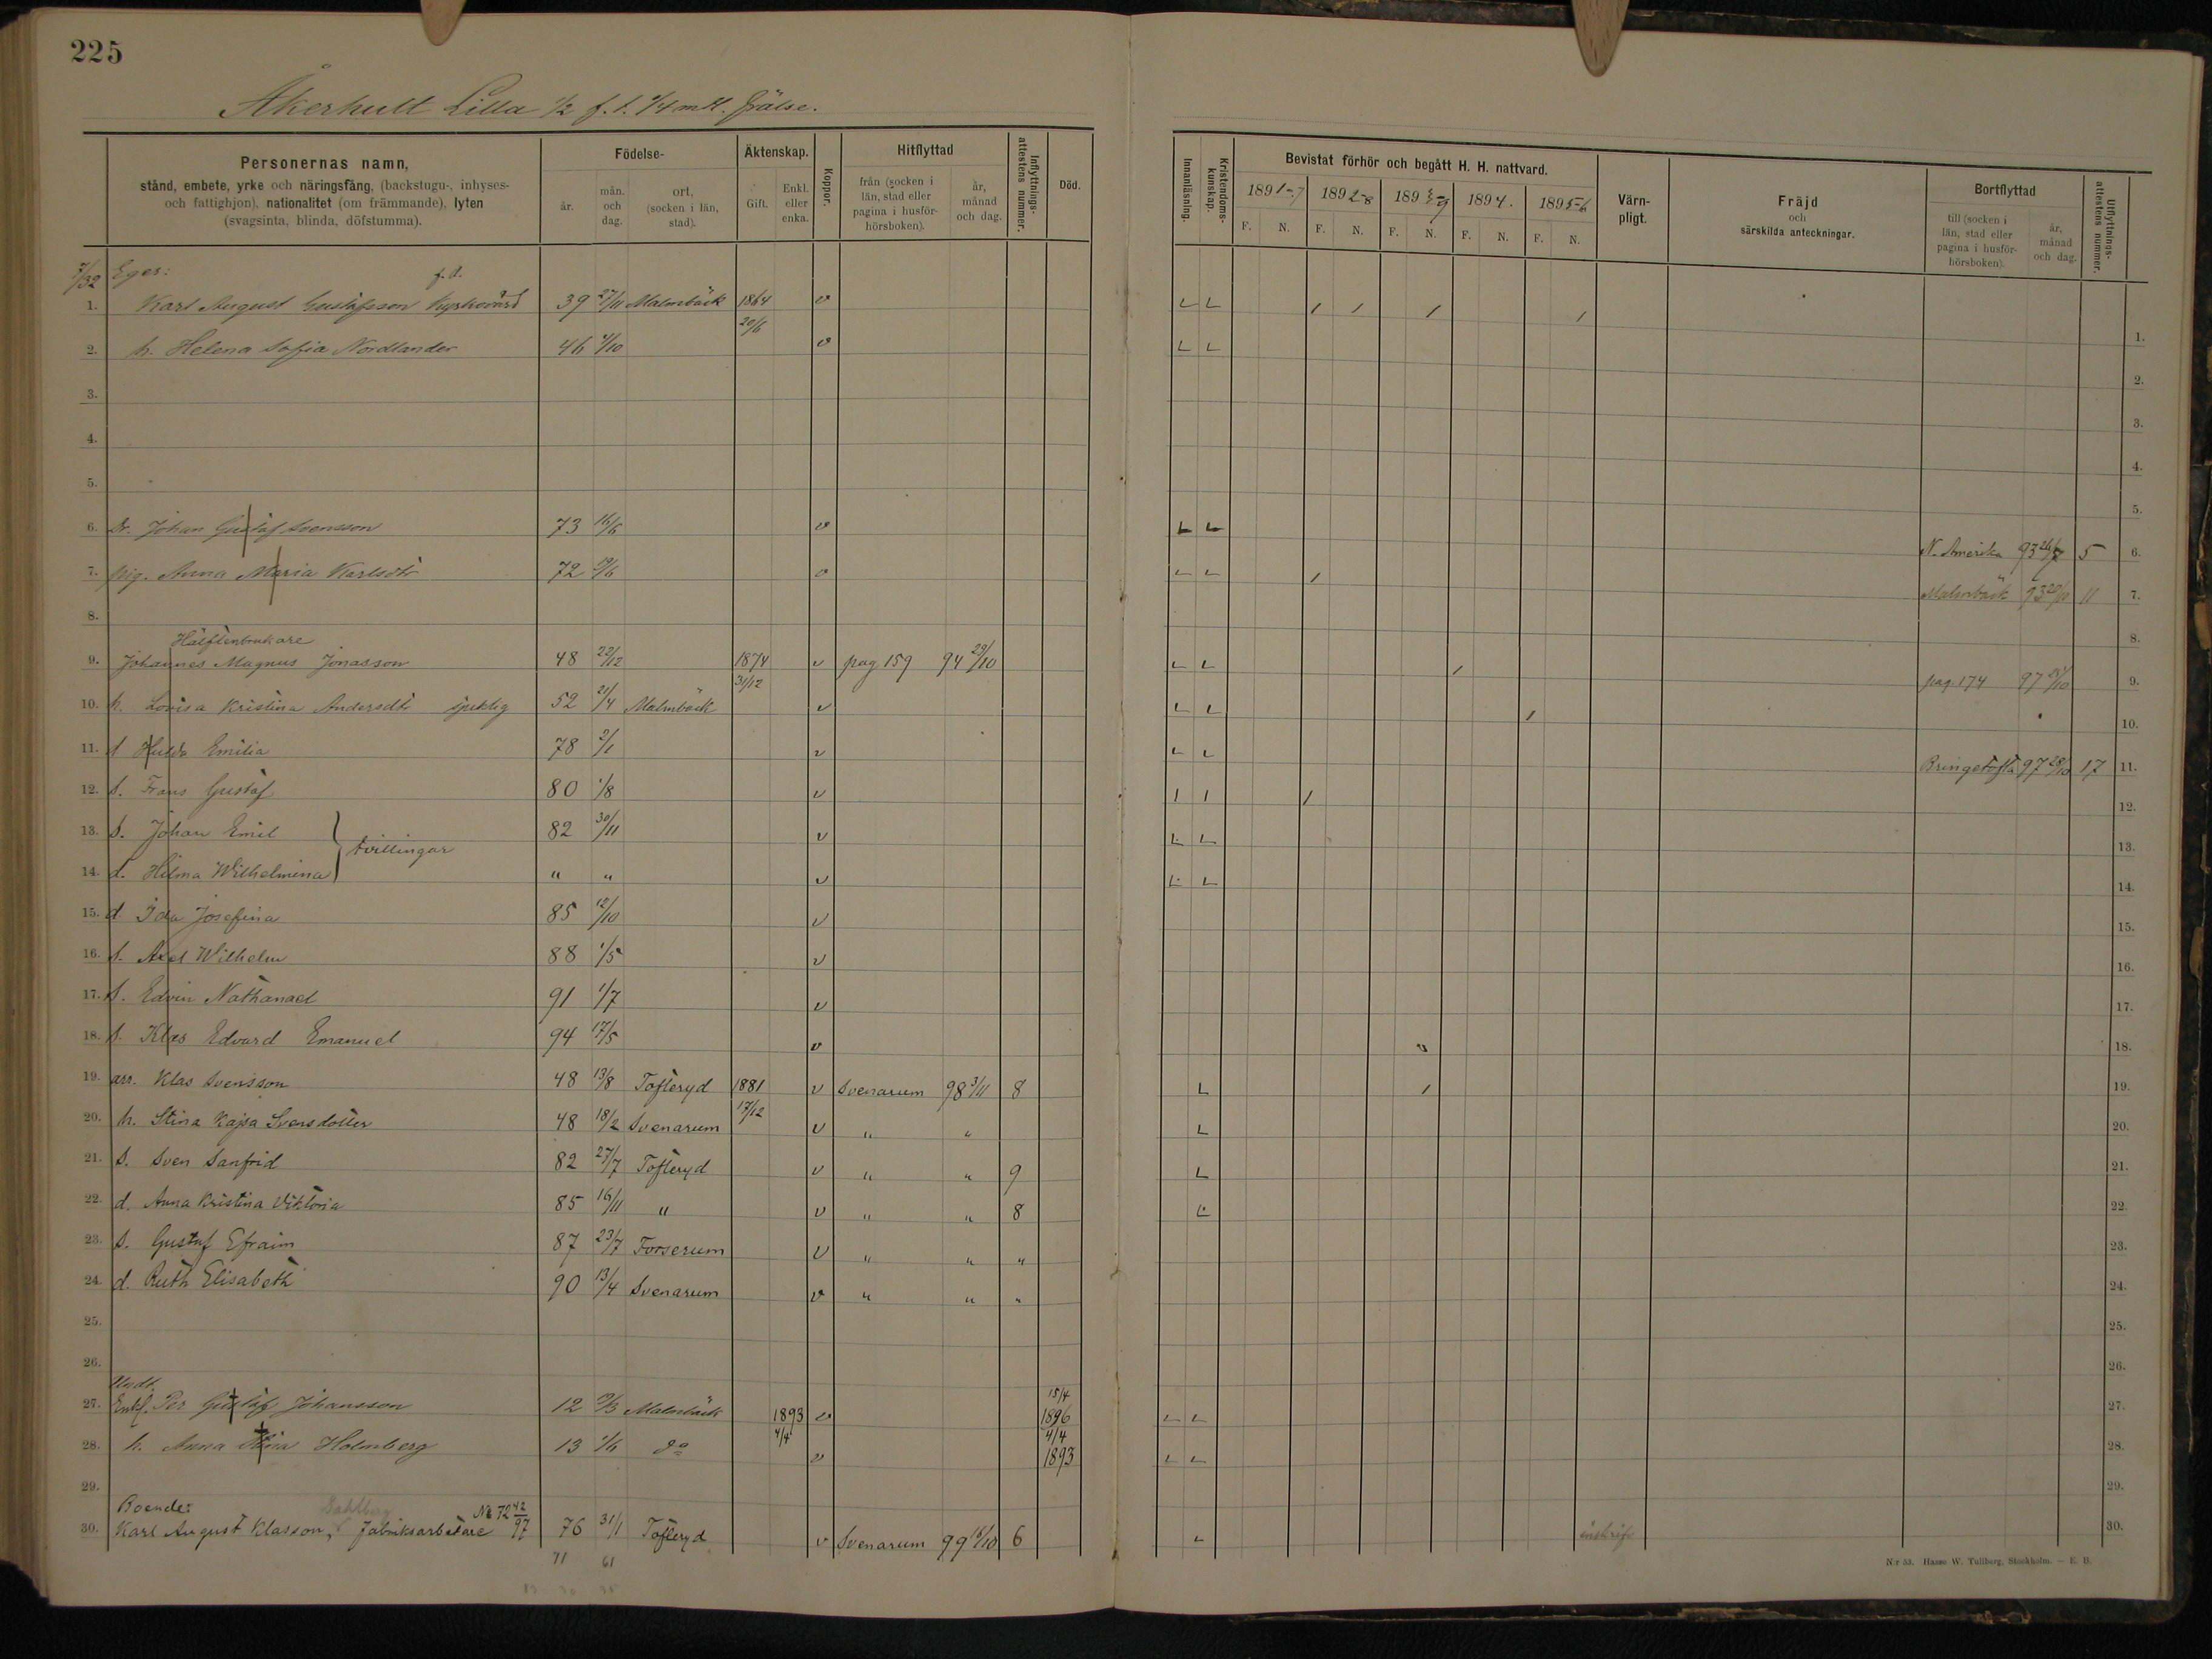 225
Åkerhult Lilla 1/2 f. d. 1/4 mtl. frälse.
Personernas namn,
stånd, embete, yrke och näringsfång, (backstugu-, inhyses-
och fattighjon), nationalitet (om främmande), lyten
(svagsinta, blinda, döfstumma).
Födelse-
år.
mån. och dag.
ort, (socken i län, stad).
Äktenskap.
Gift.
Enkl. eller enka.
Koppor.
Hitflyttad
från (socken i län, stad eller pagina i husförhörsboken).
år, månad och dag.
Inflyttnings-attestens nummer.
Död.
Innanläsning.
Kristendoms-kunskap.
Bevistat förhör och begått H. H. nattvard.
1891-7 1892-8 1893-9 1894. 1895-6
F. N. F. N. F. N. F. N. F. N.
Värn-pligt.
Fräjd
och
särskilda anteckningar.
Bortflyttad
till (socken i län, stad eller pagina i husförhörsboken).
år, månad och dag.
Utflyttnings-attestens nummer.
7/32 Eger: f. d.
1. Karl August Gustafsson Kyrkovärd 39 27/11 Malmbäck 1864 v
20/6
1.
2. h. Helena Sofia Nordlander 46 4/10 v
2.
3. 3.
4. 4.
5. 5.
6. Dr. Johan Gustaf Svensson 73 16/6 v N. Amerika 93 26/7 5 6.
7. pig. Anna Maria Karlsdtr 72 19/6 v Malmbäck 93 20/11 11 7.
8. 8.
Hälftenbrukare
9. Johannes Magnus Jonasson 48 22/12 1874 v pag 159 94 29/10 pag. 174 97 24/10 9.
31/12
10. h. Lovisa Kristina Andersdtr sjuklig 52 21/4 Malmbäck v 10.
11. d Hulda Emilia 78 2/1 v Bringetofta 97 28/10 17 11.
12. s. Frans Gustaf 80 1/8 v 12.
13. s. Johan Emil 82 30/11 v 13.
tvillingar
14. d. Hilma Wilhelmina " " v 14.
15. d Ida Josefina 85 12/10 v 15.
16. s. Axel Wilhelm 88 1/5 v 16.
17. s. Edvin Nathanael 91 1/7 v 17.
18. s. Klas Edvard Emanuel 94 17/5 v 18.
19. arr. Klas Svensson 48 13/8 Tofteryd 1881 v Svenarum 98 3/11 8 19.
17/12
20. h. Stina Kajsa Svensdotter 48 18/2 Svenarum v " " 20.
21. s. Sven Sanfrid 82 27/7 Tofteryd v " " 9 21.
22. d. Anna Kristina Viktoria 85 16/11 " v " " 8 22.
23. s. Gustaf Efraim 87 23/7 Forserum v " " " 23.
24. d. Ruth Elisabeth 90 13/4 Svenarum v " " " 24.
25. 25.
26. 26.
Undt.
15/4
27. Enkl. Per Gustaf Johansson 12 9/3 Malmbäck 1893 v 1896 27.
4/4 4/4
28. h. Anna Stina Holmberg 13 1/6 do v 1893 28.
29. 29.
Boende: Dahlberg No 72 42/97
30. Karl August Klasson, Fabriksarbetare 76 31/1 Tofteryd v Svenarum 99 16/10 6 30.
71 61
N:r 53. Hasse W. Tullberg, Stockholm. — E. B.